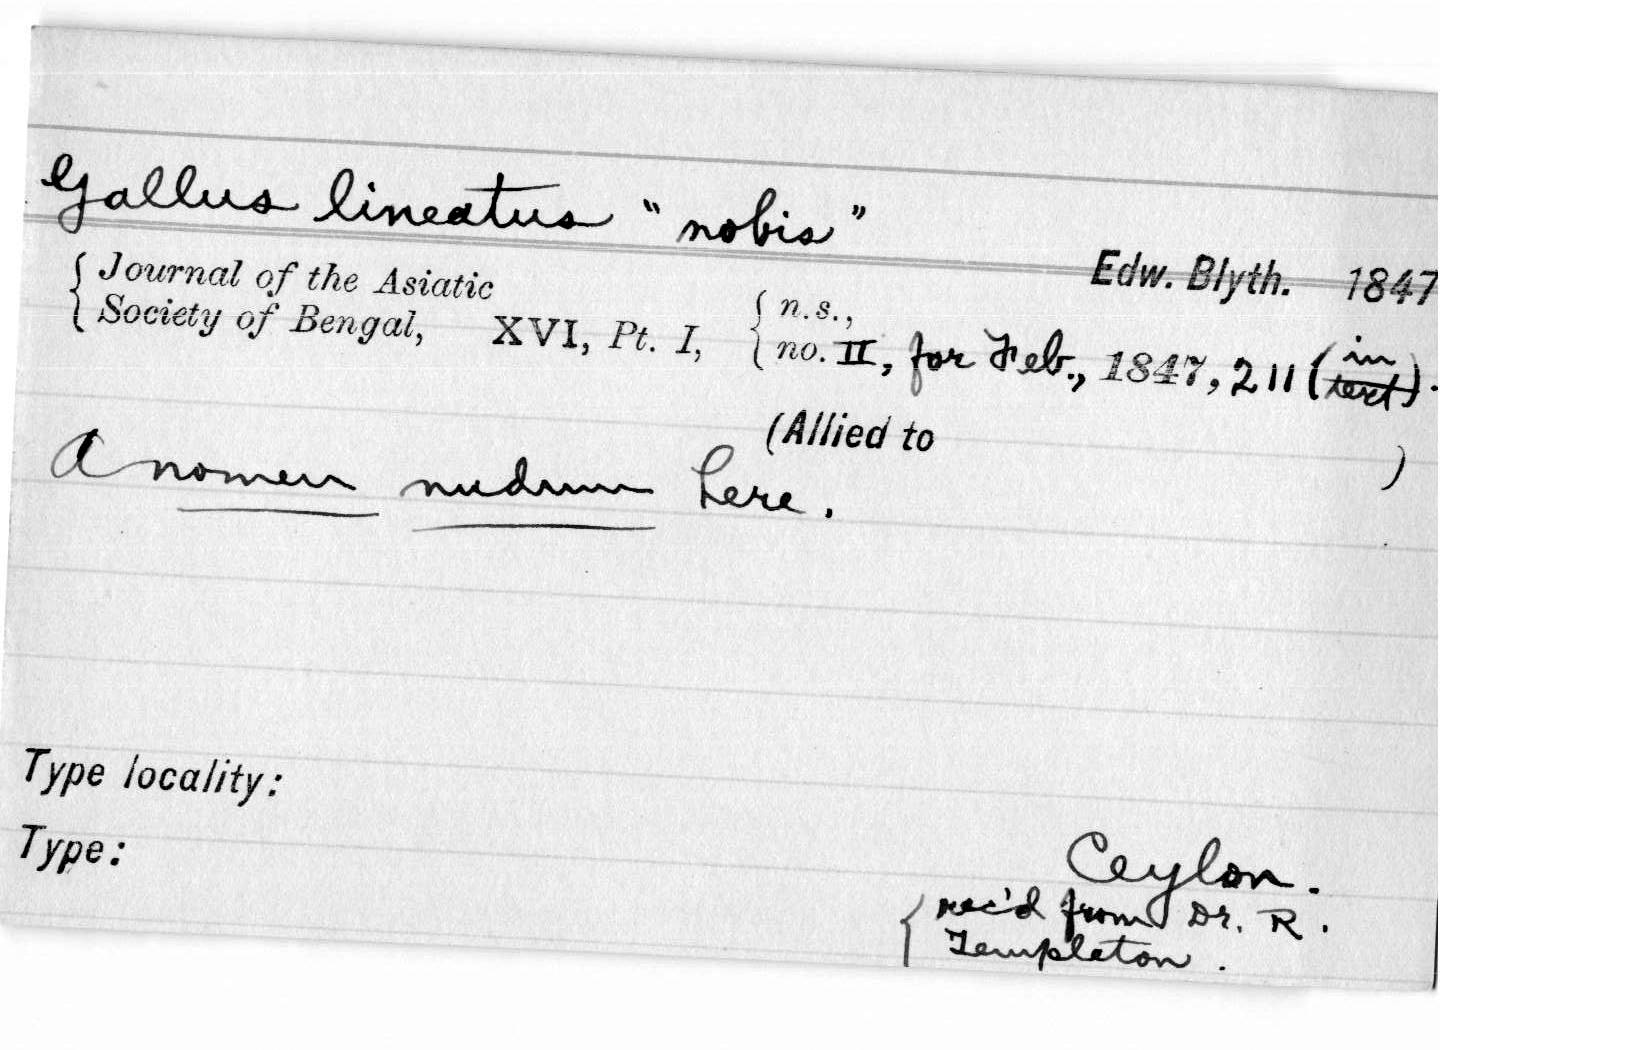 Gallus lineatus "nobis"
Edw. Blyth. 1847
{ Journal of the Asiatic
Society of Bengal, XVI, Pt. I, { n.s.,
no. II, for Feb., 1847, 211 (in
text).
(Allied to )
A nomen nudum here.
Type locality:
Type:
Ceylon.
{ rec'd from Dr. R.
Templeton.